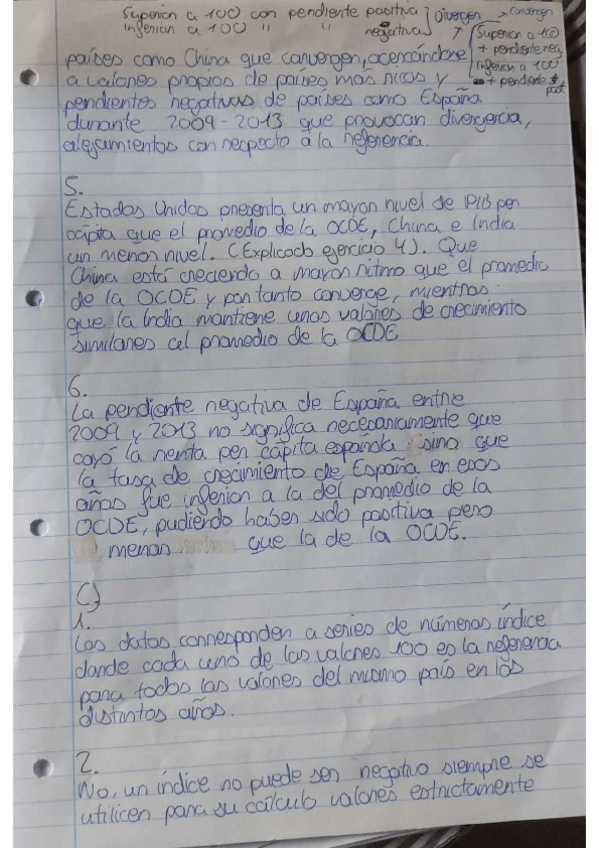 Superior a 100 con pendiente positiva } Divergen
Inferior a 100 " " " negativa
Convergen
Superior a 100
+ pendiente neg
Inferior a 100
+ pendiente post
países como China que convergen, acercándose
a valores propios de países más ricos y
pendientes negativas de países como España
durante 2009-2013 que provocan divergencia,
alejamientos con respecto a la referencia.
5.
Estados Unidos presenta un mayor nivel de PIB per
cápita que el promedio de la OCDE, China e India
un menor nivel. (Explicado ejercicio 4). Que
China está creciendo a mayor ritmo que el promedio
de la OCDE y por tanto converge, mientras
que la India mantiene unos valores de crecimiento
similares al promedio de la OCDE
6.
La pendiente negativa de España entre
2009 y 2013 no significa necesariamente que
cayó la renta per cápita española sino que
la tasa de crecimiento de España en esos
años fue inferior a la del promedio de la
OCDE, pudiendo haber sido positiva pero
menor que la de la OCDE.
C)
1.
Los datos corresponden a series de números índice
donde cada uno de los valores 100 es la referencia
para todos los valores del mismo país en los
distintos años.
2.
No, un índice no puede ser negativo siempre se
utilicen para su cálculo valores estrictamente